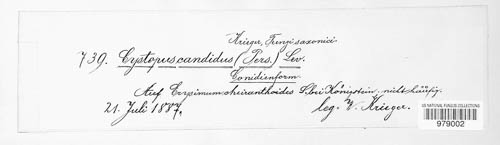 Krieger, Fungi saxonici
739. Cystopus candidus (Pers.) Lev.
Conidienform
Auf Erysimum cheiranthoides L. bei Königstein, nicht häufig.
21. Juli 1887, leg. W. Krieger.
US NATIONAL FUNGUS COLLECTIONS
979002